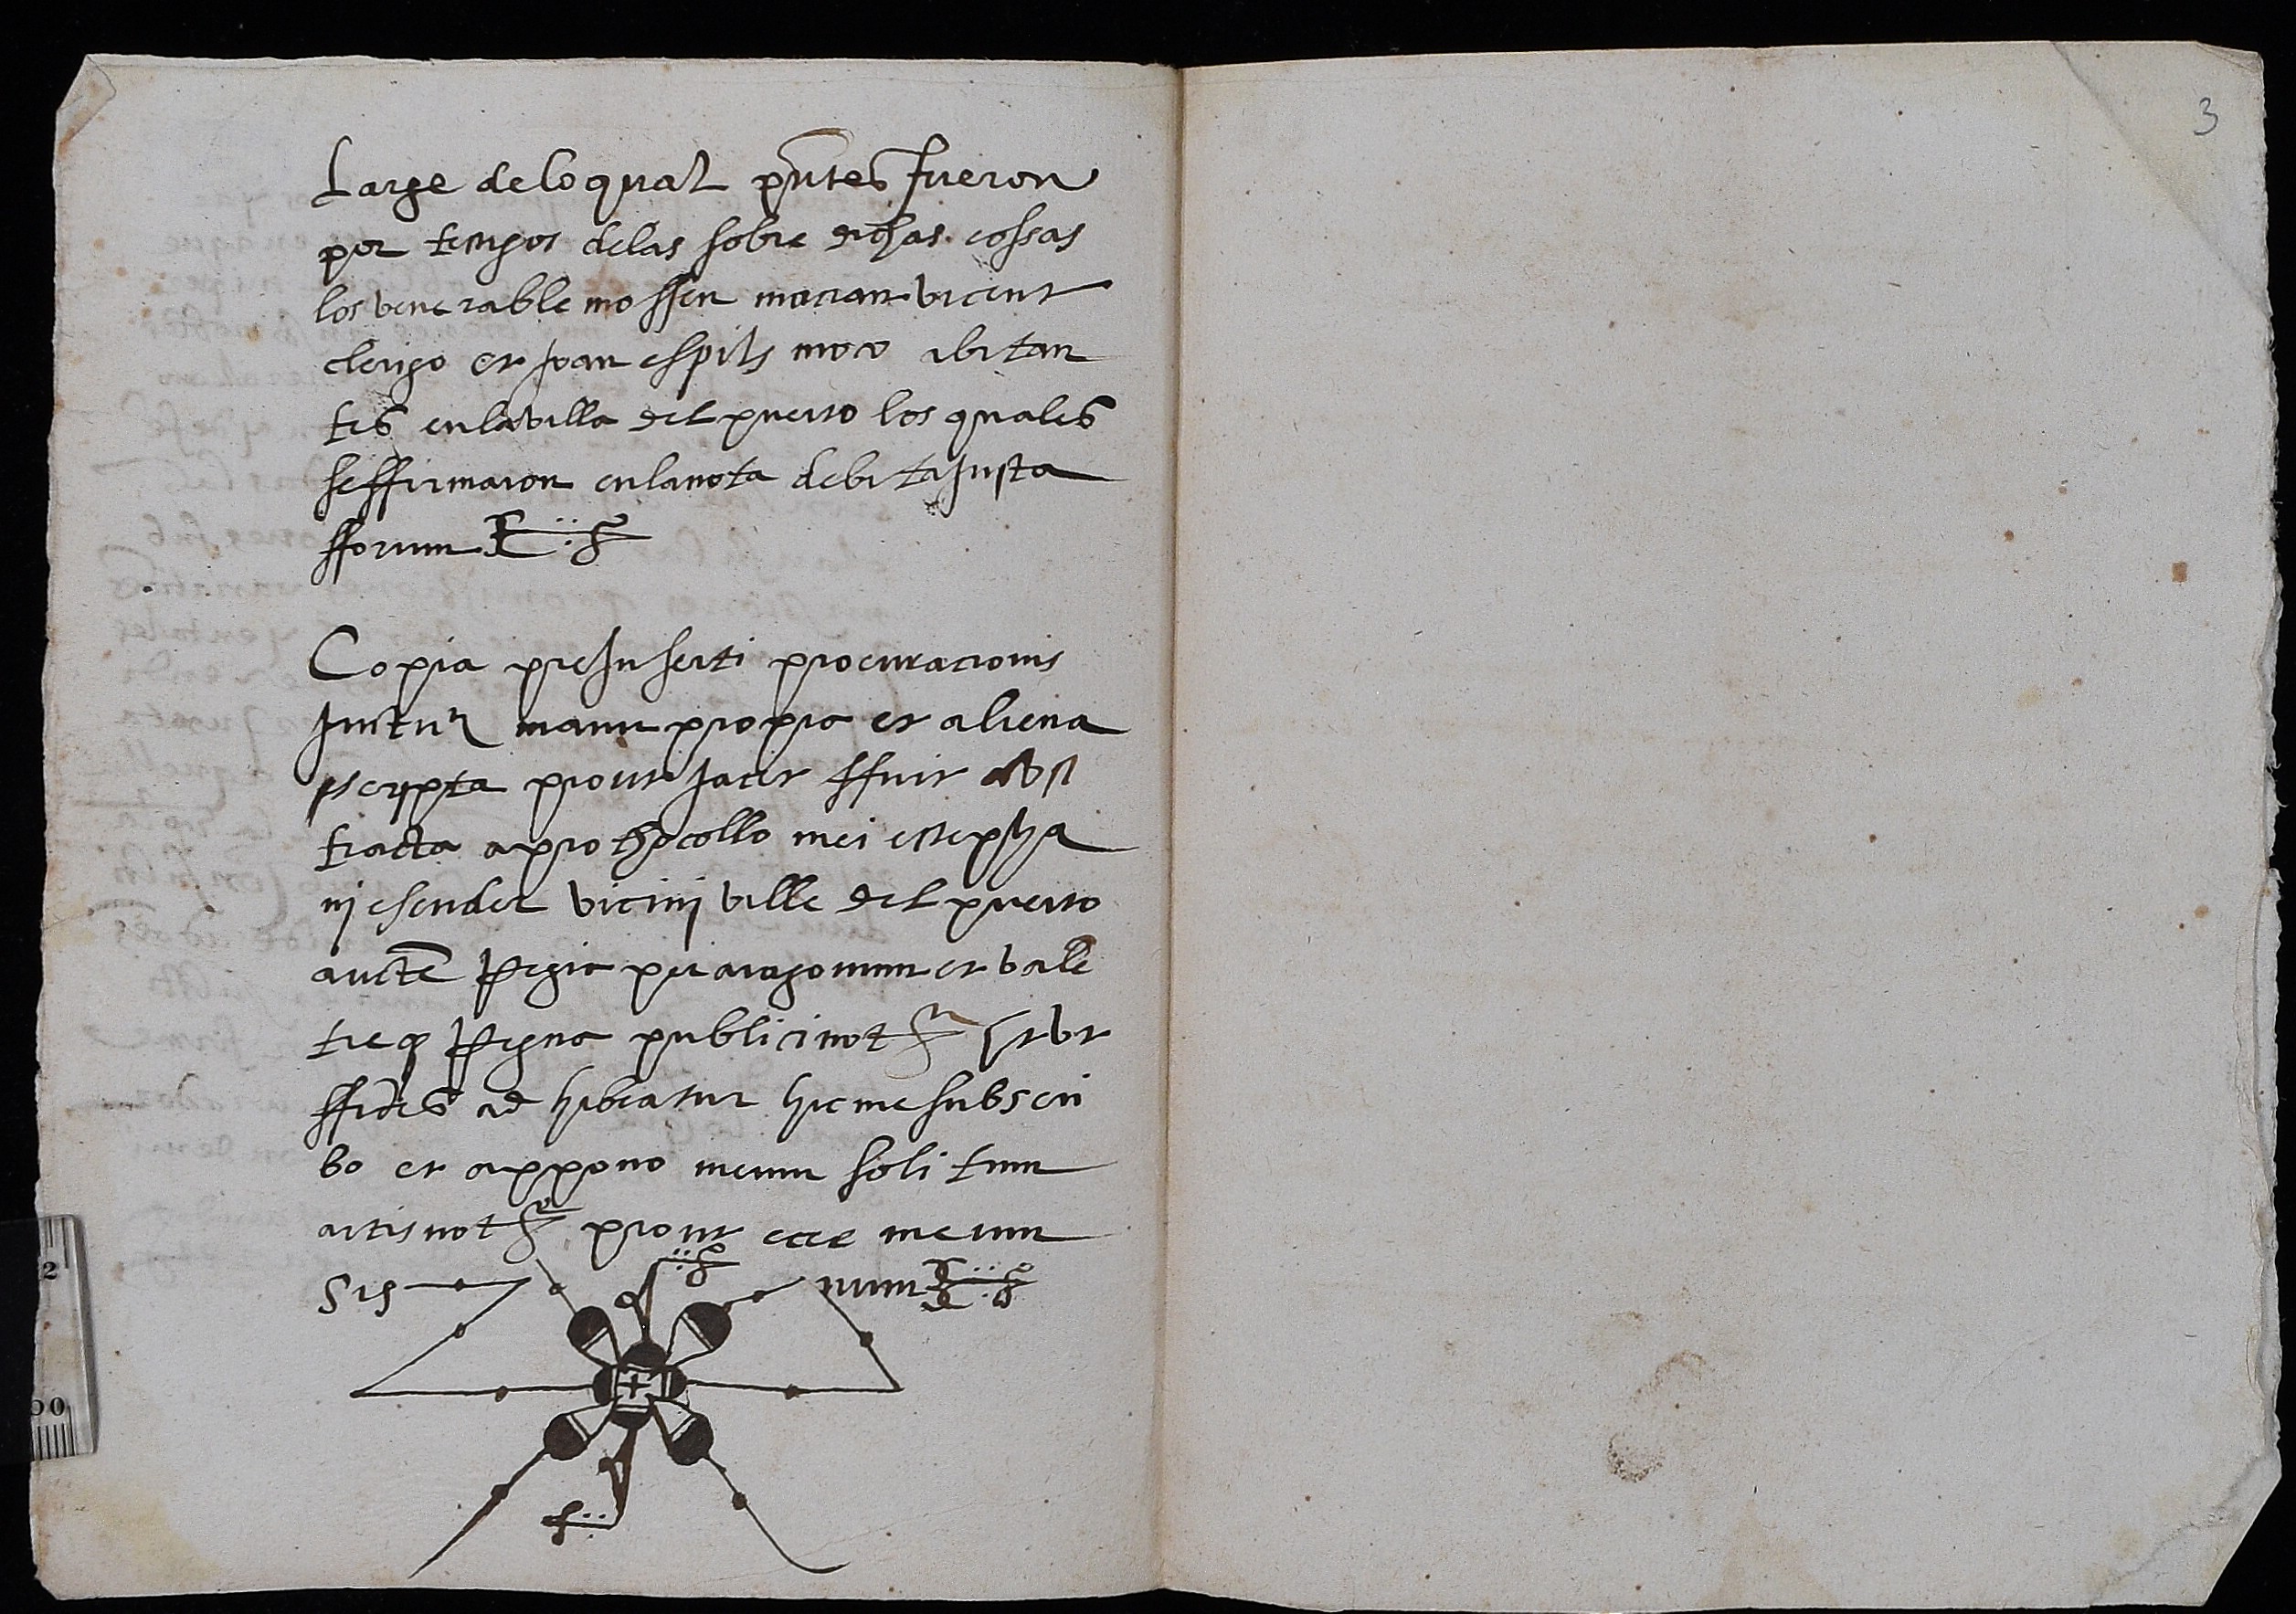 3
Large de lo qual pntes fueron
por testigos de las sobre dichas cossas
los venerable mossen marian vicent
clerigo et Joan espils moco abitan
tes en la villa del puerto los quales
se ffirmaron en la nota debita Justa
fforum
Copia preJnserti procuracionis
manu propria et aliena
escripta prout Jacet ffuit abst
tracta a prothocollo mei estepha
nj esender vicinj ville del puerto
aucte Regia per aragonum et vale
tieq Regna publici not Et vt
ffides ad hibeatur hic me subscri
bo et appono meum solitum
artis not prout ecce meum
Sig num